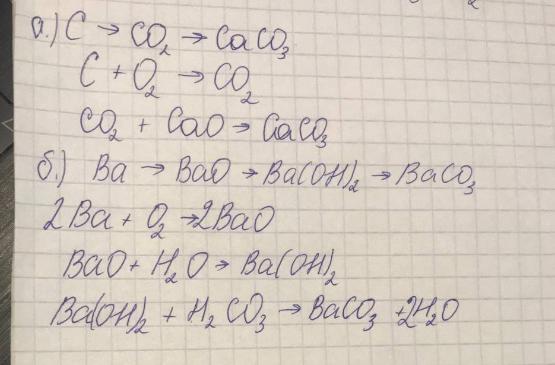 а.) C → CO₂ → CaCO₃
C + O₂ → CO₂
CO₂ + CaO → CaCO₃
б.) Ba → BaO → Ba(OH)₂ → BaCO₃
2Ba + O₂ → 2BaO
BaO + H₂O → Ba(OH)₂
Ba(OH)₂ + H₂CO₃ → BaCO₃ + 2H₂O